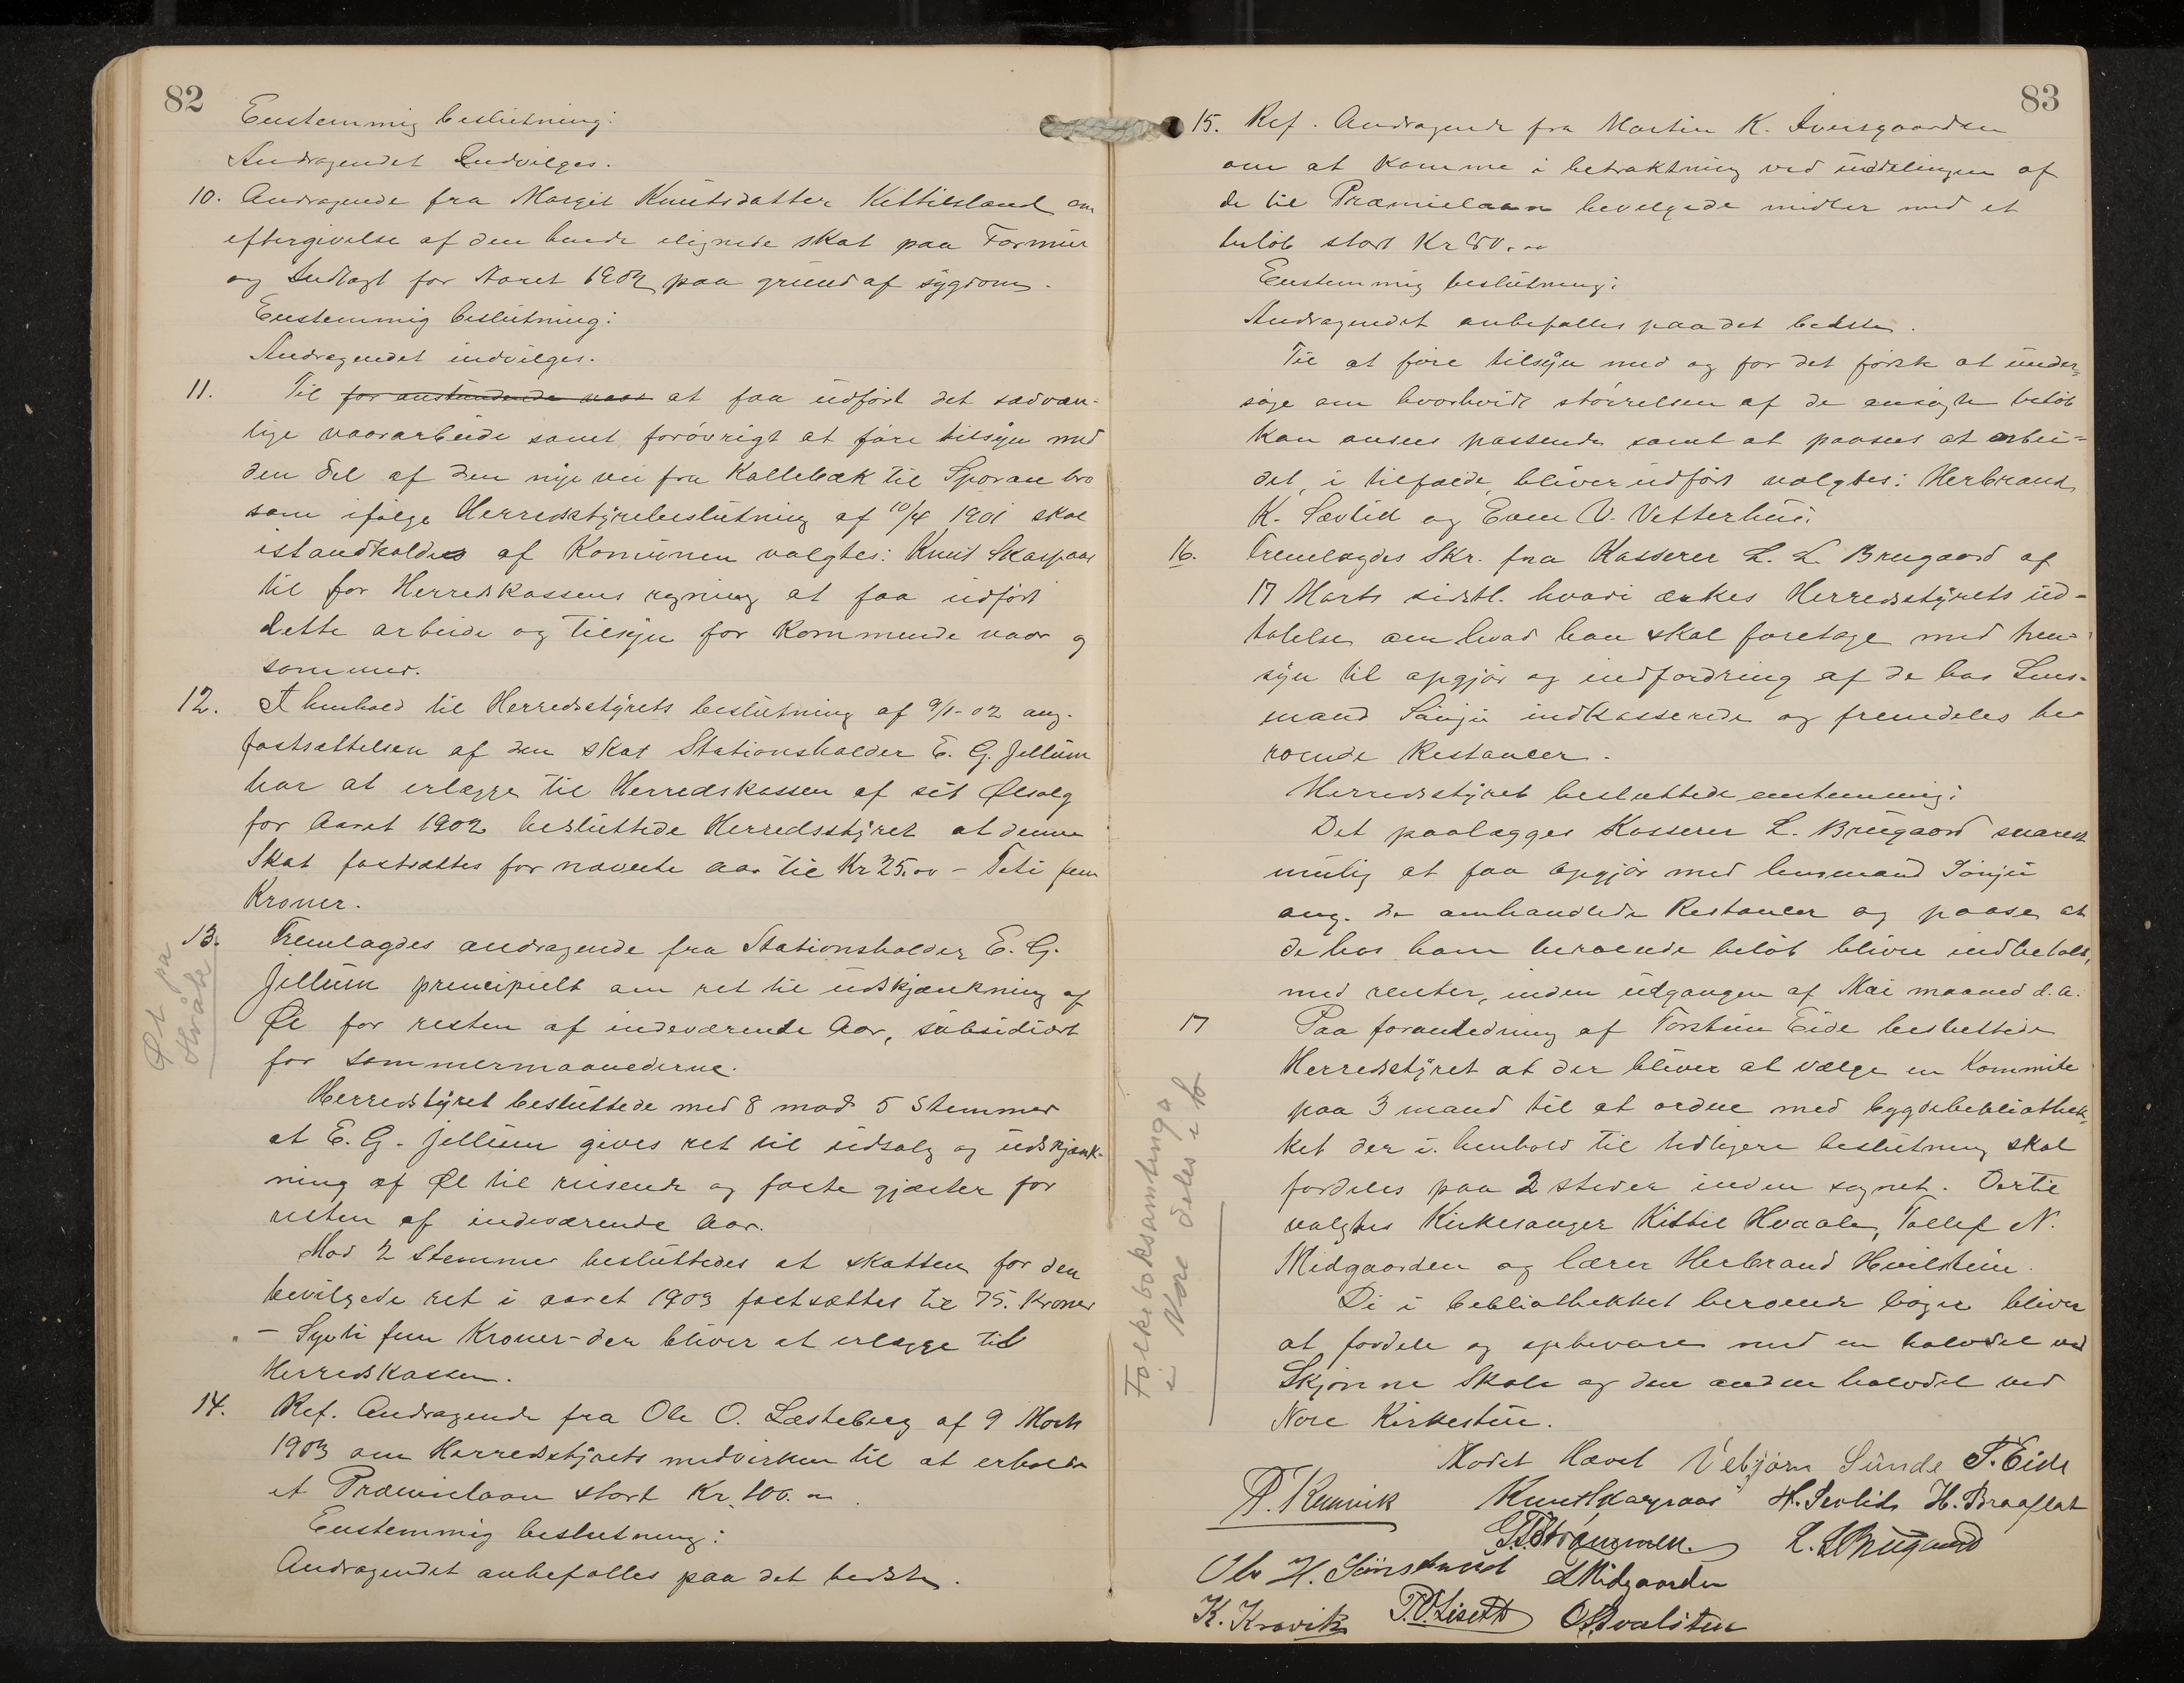 82
Enstemmig beslutning:
Andragendet Indvilges.
10. Andragende fra Margit Knutsdatter Kittilsland om
eftergivelse af den hende ilignede skat paa Formue
og Indtægt for Aaret 1902 paa grund af sygdom.
Enstemmig beslutning:
Andragendet indvilges.
11. Til for anstundende vaar at faa udført det sædvan-
lige vaararbeide samt forøvrigt at føre tilsyn med
den del af den nye vei fra Kallebæk til Sporan bro
som ifølge Herredsstyrebeslutning af 10/4 1901 skal
istandholdes af Komunen valgtes: Knut Skarpaas
til for Herredskassens regning at faa udført
dette arbeide og tilsyn for kommende vaar og
sommer.
12. I henhold til Herredsstyrets beslutning af 9/1-02 ang.
fastsættelsen af den skat Stationsholder E. G. Jellum
har at erlægge til Herredskassen af sit Ølsalg
for Aaret 1902 besluttede Herredsstyret at denne
Skat fastsættes for nævnte aar til Kr 25.00 - Teti fem
Kroner.
13. Fremlagdes andragende fra Stationsholder E. G.
Jellum principielt om ret til udskjænkning af
Øl for resten af indeværende Aar, subsidiært
for sommermaanederne.
Øl på
Hvåle
Herredstyret besluttede med 8 mod 5 Stemmer
at E. G. Jellum gives ret til udsalg og udskjænk-
ning af Øl til reisende og faste gjæster for
resten af indeværende Aar.
Mod 2 Stemmer besluttedes at skatten for den
bevilgede ret i aaret 1903 fastsættes til 75. Kroner
- Sytti fem Kroner - der bliver at erlægge til
Herredskassen.
14. Ref. Andragende fra Ole O. Læsteberg af 9 Marts
1903 om Herredsstyrets medvirken til at erholde
et Præmielaan stort Kr. 100.00.
Enstemmig beslutning:
Andragendet anbefalles paa det bedste.
83
15. Ref. Andragende fra Martin K. Iversgaarden
om at komme i betraktning ved uddelingen af
de til Præmielaan bevilgede midler med et
beløb stort Kr 80.00
Enstemmig beslutning:
Andragendet anbefalles paa det bedste.
Til at føre tilsyn med og for det første at under-
søge om hvorhvidt størrelsen af de ansøgte beløb
kan ansees passende samt at paasees at arbei-
det, i tilfælde, bliver udført valgtes: Herbrand
K. Sævlid og Even V. Vetterhus.
16. Fremlagdes Skr. fra Kasserer L. L. Brugaard af
17 Marts sidstl. hvori ønskes Herredsstyrets ud-
talelse om hvad han skal foretage med hen-
syn til opgjør og indfordring af de hos Lens-
mand Sønju indkasserede og fremdeles be-
roende Restancer.
Herredsstyret besluttede enstemmig:
Det paalægges Kasserer L. Brugaard snarest
mulig at faa opgjør med lensmand Sønju
ang. de omhandlede Restancer og paase at
de hos ham beroende beløb bliver indbetalt,
med renter, inden udgangen af Mai maaned d. a.
17 Paa foranledning af Torstein Eide besluttede
Herredsstyret at der bliver at vælge en Kommite
paa 3 mand til at ordne med bygdebebliothek-
ket der i henhold til tidligere beslutning skal
fordeles paa 2 steder inden sognet. Dertil
valgtes Kirkesanger Kittil Hvaale, Tollef N.
Midgaarden og lærer Herbrand Hvilstein.
De i bebliothekket beroende bøger bliver
at fordele og opbevare med en halvdel ved
Skjønne Skole og den anden halvdel ved
Nore Kirkestue.
Folkeboksamlinga
i Nore deles i to
Mødet Hævet Vebjørn Sunde T. Eide
Knut Skarpaas H. Sevlid H. Braaflat
G. T. Strømmen. L. L. Brugaard
Ole H. Sønsterud T Midgaarden
K. Kravik